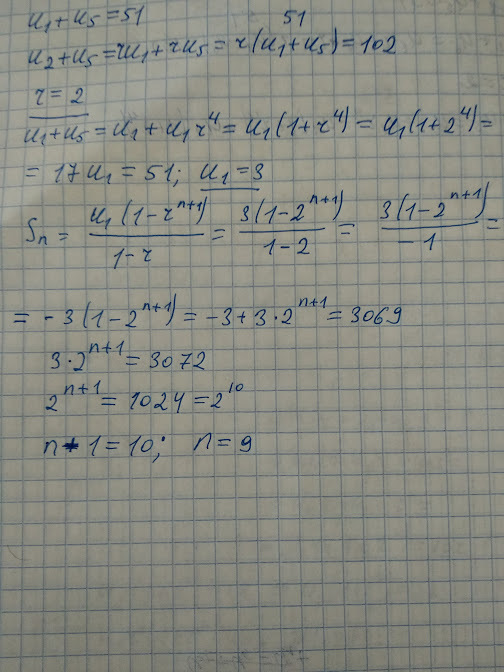 u₁+u₅=51
51
u₂+u₅=ru₁+ru₅=r(u₁+u₅)=102
r=2
u₁+u₅=u₁+u₁r⁴=u₁(1+r⁴)=u₁(1+2⁴)=
=17u₁=51; u₁=3
Sₙ= u₁(1-rⁿ⁺¹)/1-r = 3(1-2ⁿ⁺¹)/1-2 = 3(1-2ⁿ⁺¹)/-1 =
=-3(1-2ⁿ⁺¹)=-3+3·2ⁿ⁺¹=3069
3·2ⁿ⁺¹=3072
2ⁿ⁺¹=1024=2¹⁰
n+1=10; n=9